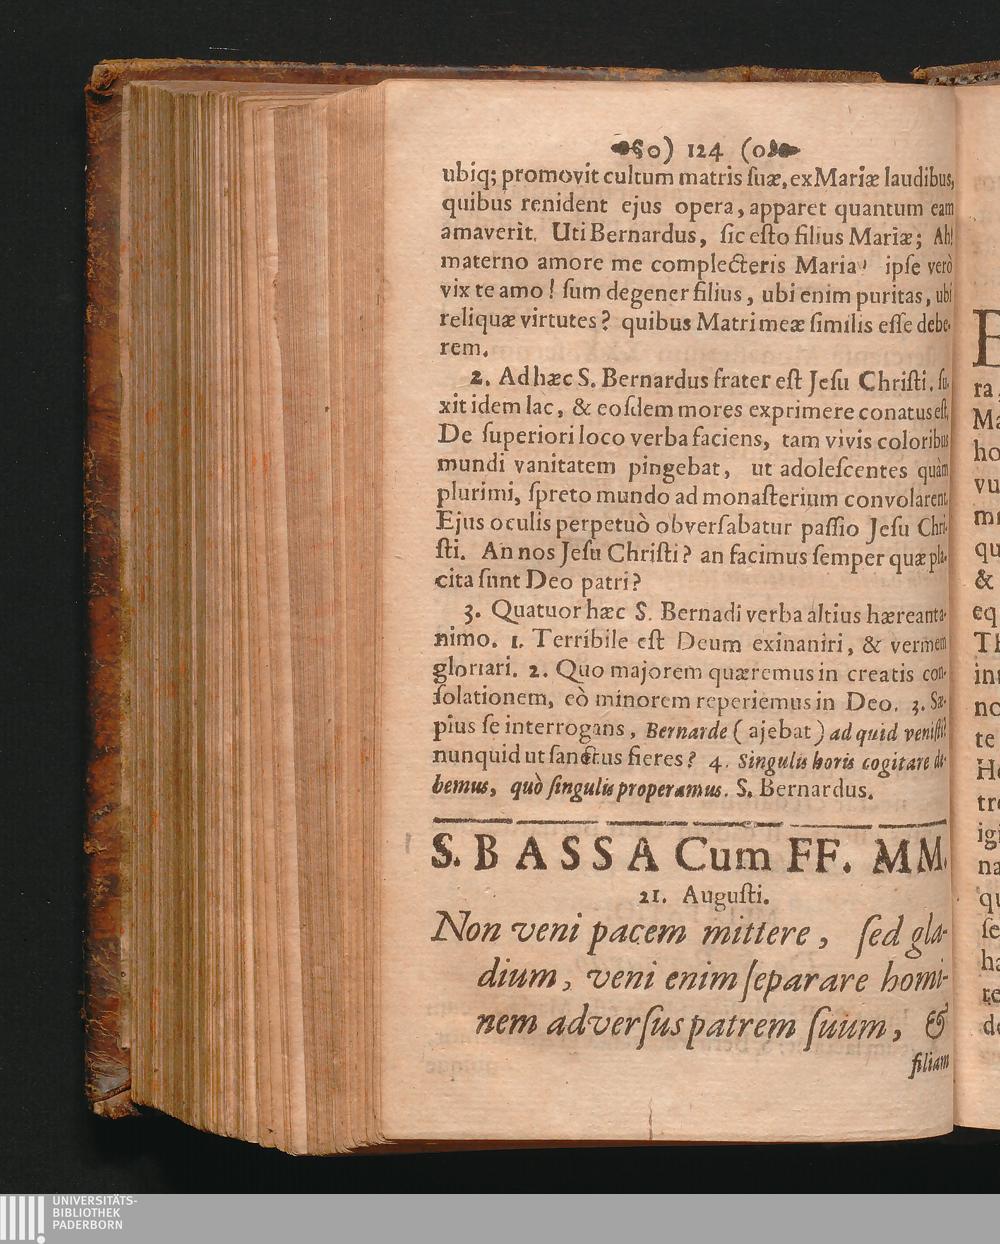 o) 124 (o
ubiq; promovit cultum matris ſuæ, ex Mariæ laudibus,
quibus renident ejus opera, apparet quantum eam
amaverit. Uti Bernardus, ſic eſto filius Mariæ; Ah!
materno amore me complecteris Maria, ipſe verò
vix te amo! ſum degener filius, ubi enim puritas, ubi
reliquæ virtutes? quibus Matri meæ ſimilis eſſe debe-
rem.
2. Ad hæc S. Bernardus frater eſt Jeſu Chriſti. ſu-
xit idem lac, & eoſdem mores exprimere conatus eſt.
De ſuperiori loco verba faciens, tam vivis coloribus
mundi vanitatem pingebat, ut adoleſcentes quàm
plurimi, ſpreto mundo ad monaſterium convolarent.
Ejus oculis perpetuò obverſabatur paſſio Jeſu Chri-
ſti. An nos Jeſu Chriſti? an facimus ſemper quæ pla-
cita ſunt Deo patri?
3. Quatuor hæc S. Bernadi verba altius hæreant a-
nimo. 1. Terribile eſt Deum exinaniri, & vermem
gloriari. 2. Quo majorem quæremus in creatis con-
ſolationem, eò minorem reperiemus in Deo. 3. Sæ-
pius ſe interrogans, Bernarde ( ajebat ) ad quid veniſti?
nunquid ut ſanctus fieres? 4. Singulis horis cogitare de-
bemus, quò ſingulis properamus. S. Bernardus.
S. BASSA Cum FF. MM.
21. Auguſti.
Non veni pacem mittere, ſed gla-
dium, veni enim ſeparare homi-
nem adverſus patrem ſuum, &
filiam
ra,
Ma
ho
vu
qu
&
eq
Th
int
no
te
He
tro
igi
na
qu
ſe
ha
re
de
UNIVERSITÄTS-
BIBLIOTHEK
PADERBORN